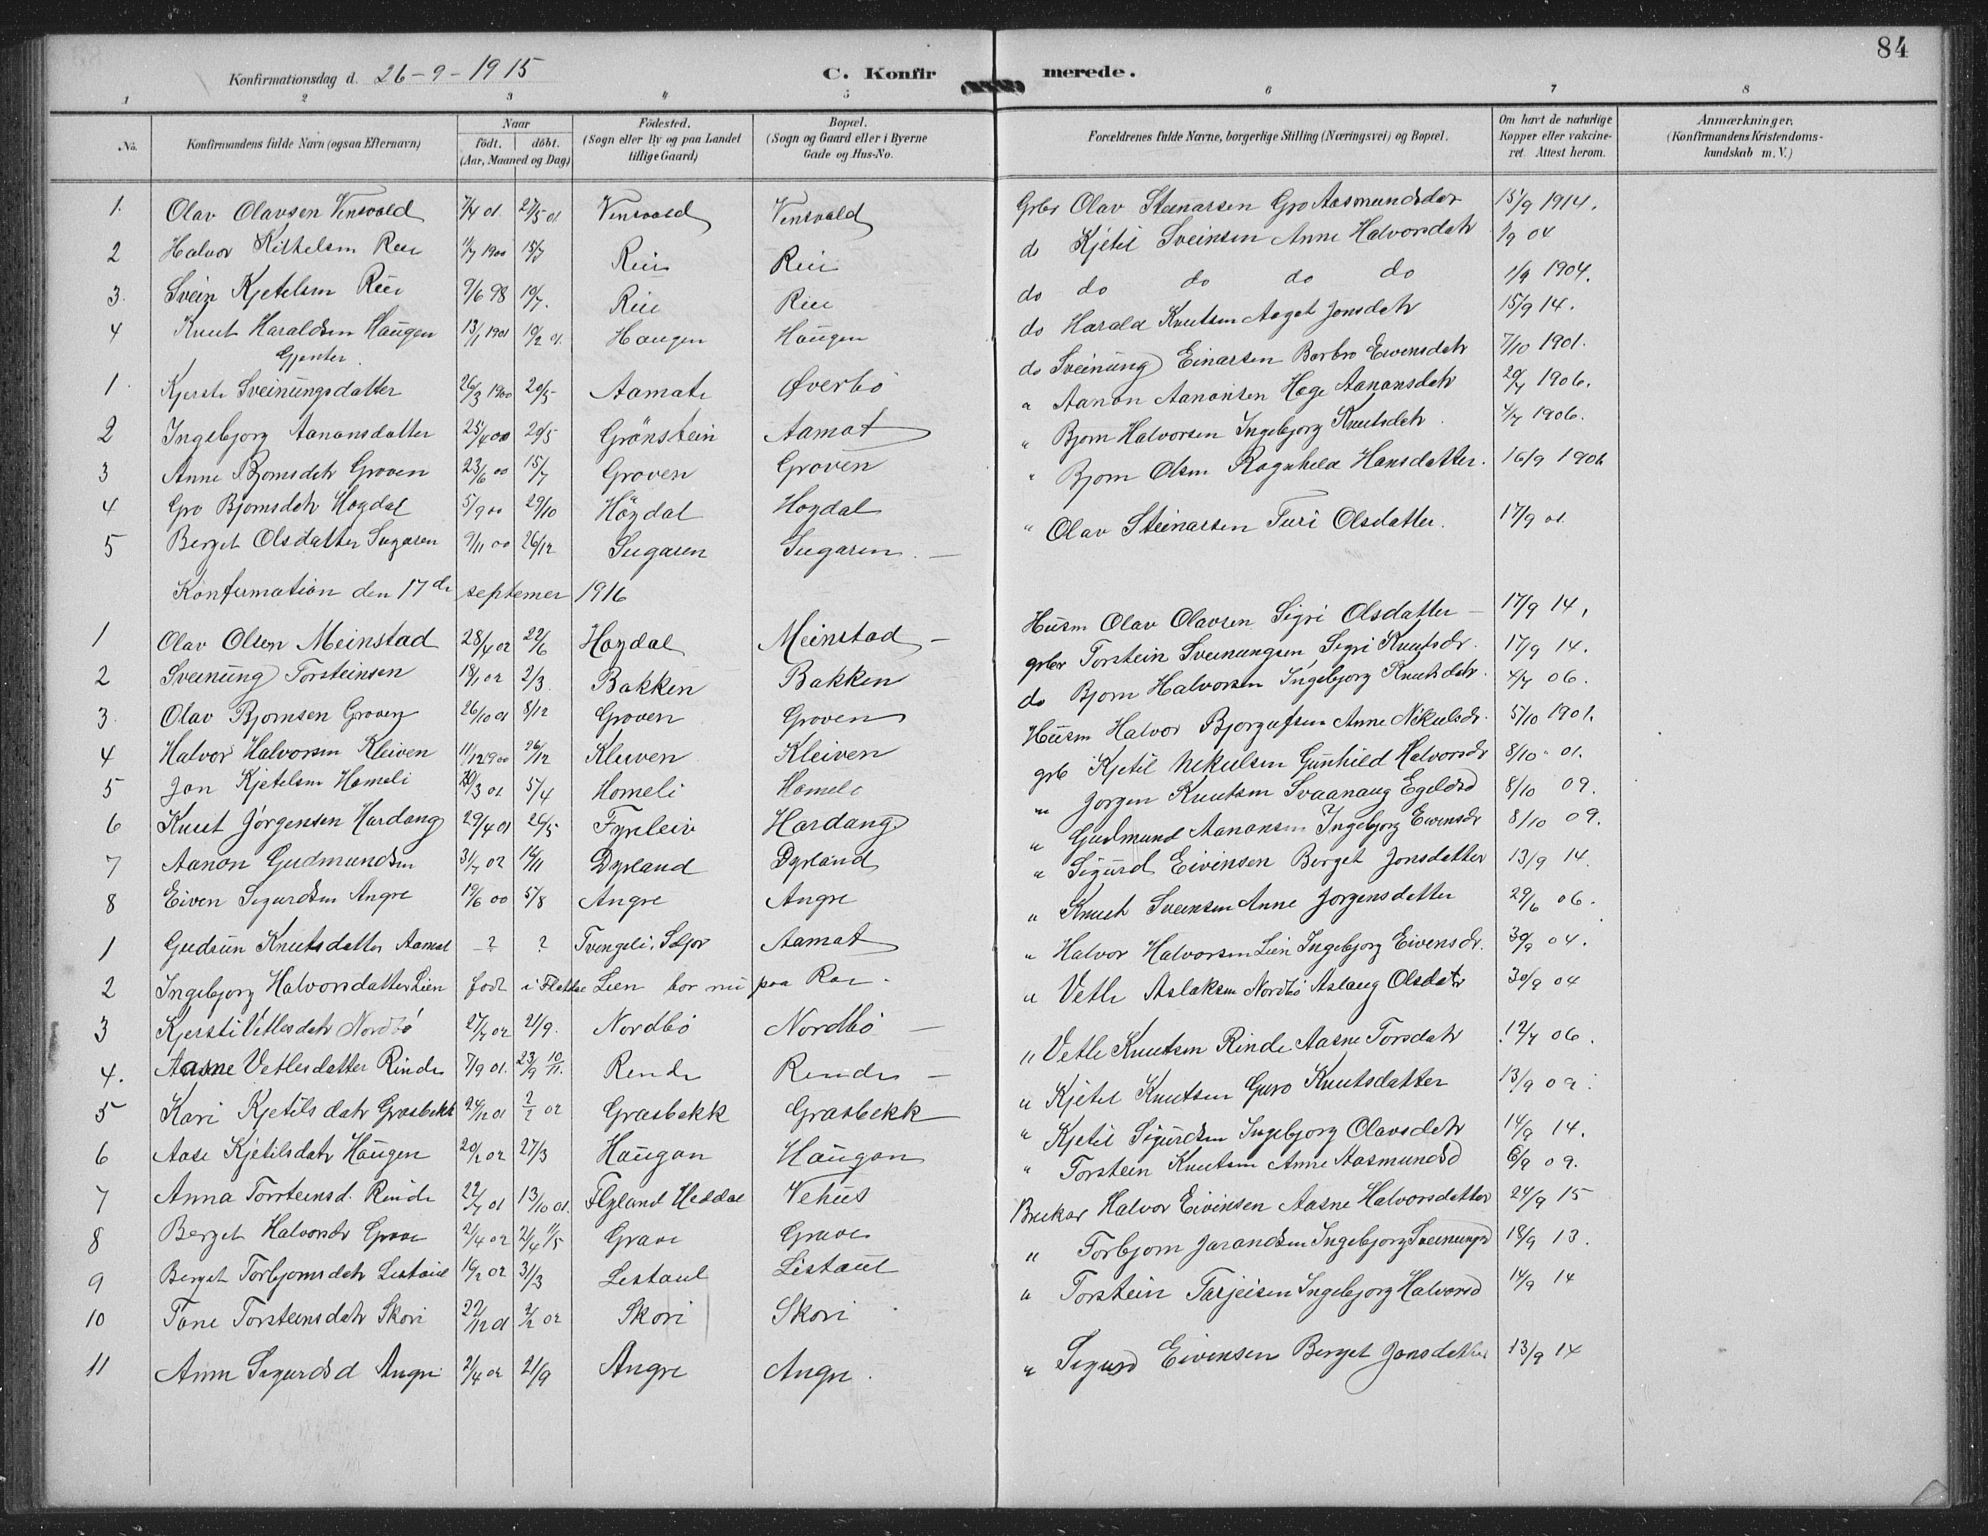 84
Konfirmationsdag d. 26-9-1915 C. Konfirmerede.
1 2 3 4 5 6 7 8
No. Konfirmandens fulde Navn (ogsaa Efternavn) Naar födt. döbt. (Aar, Maaned og Dag) Födested. (Sogn eller By og paa Landet tillige Gaard) Bopæl. (Sogn og Gaard eller i Byerne Gade og Hus-No. Forældrenes fulde Navne, borgerlige Stilling (Næringsvei) og Bopæl. Om havt de naturlige Kopper eller vakcineret. Attest herom. Anmærkninger. (Konfirmandens Kristendomskundskab m. V.)
1. Olav Olavsen Vinsvald 7/4 01. 27/5 01 Vinsvald Vinsvald Grbr Olav Steinarsen Gro Aasmundsdtr 15/9 1914.
2 Halvor Kittelsen Rue 1/7 1900 15/7 Rui Rui do Kjetil Sveinsen Anne Halvorsdatr 1/9 04
3. Svein Kjetelsen Rue 9/6 98 10/7. Rue Rue do do do do do 1/9 1904.
4 Knut Haraldsen Haugen 13/1 1901 10/2 01. Haugen Haugen do Harald Knutsen Aaget Jonsdatr 15/9 14.
Gjenter.
1 Kjersti Sveinungsdatter 26/3 1900 20/5 Aamate Överbö do Sveinung Einarsen Barbro Eivensdatr 7/10 1901.
2 Ingebjorg Aanonsdatter 25/4 00 20/5 Grönstein Aamat " Aanon Aanonsen Hege Aanonsdatr 20/7 1906.
3 Anne Bjornsdatr Groven 23/6 00 15/7 Groven Groven " Bjorn Halvorsen Ingebjorg Knutsdatr. 4/7 1906.
4 Gro Bjornsdatr Hogdal 5/9 00 29/10 Högdal Hogdal " Bjorn Olsen Ragnhild Hansdatter. 16/9 1906
5 Berget Olsdatter Sugaren 9/11 00 26/12 Sugaren Sugaren. — " Olav Steinarsen Turi Olsdatter. 17/9 01.
Konfirmation den 17de septemer 1916
1 Olav Olsen Meinstad 28/4 02 22/6 Hogdal Meinstad — Husm Olav Olavsen Sigri Olsdatter — 17/9 14.
2 Sveinung Torsteinsen 18/1 02 2/3. Bakken Bakken grbr Torstein Sveinungsen Sigri Knutsdr. 17/9 14.
3. Olav Bjornsen Groven 26/10 01 8/12 Groven Groven do Bjorn Halvorsen Ingebjorg Knutsdatr. 4/7 06.
4 Halvor Halvorsen Kleiven 11/12 1900 26/12 Kleiven Kleiven Husm Halvor Bjorgufsen Anne Nikulsdr. 5/10 1901.
5 Jon Kjetelsen Homeli 20/3 01 5/4 Homeli Homeli grb Kjetil Nekulsen Gunhild Halvorsdr 8/10 01.
6 Knut Jørgensen Hardang 29/4 01 26/5 Fyrileiv Hardang " Jorgen Knutsen Svaanaug Egeldsd 8/10 09.
7 Aanon Gudmundsen 31/7 02 16/11 Dyrland Dyrland " Gudmund Aanonsen Ingebjorg Eivensdr 8/10 09.
8 Eiven Sigurdsen Angre 19/6 00 5/8 Angre Angre " Sigurd Eivinsen Berget Jonsdatter 13/9 14.
1 Gudrun Knutsdatter Aamat ? ? Tvengeli, Seljor Aamat " Knut Sveinsen Anne Jorgensdatter 29/6 06.
2 Ingebjorg Halvorsdatter Lien fodt i Flatbø Lien bor nu paa Roe. " Halvor Halvorsen Lien Ingebjorg Eivensdr. 30/9 04.
3 Kjersti Vetlesdatr Nordbö 27/7 02 21/9. Nordbö Nordbö — " Vetle Aslaksen Nordbö Aslaug Olsdatr 30/9 04
4. Aasne Vetlesdatter Rinde 7/9 01. 23/9 10/11. Rende Rende — " Vetle Knutsen Rinde Aasne Torsdatr 12/7 06.
5 Kari Kjetilsdatr Grasbekk 24/12 01 2/2 02 Grasbekk Grasbekk " Kjetel Knutsen Guro Knutsdatter 13/9 09.
6 Aase Kjetilsdatr Haugen 20/2 02 27/3 Haugan Haugan " Kjetil Sigurdsen Ingebjorg Olavsdatr 14/9 14.
7 Anna Torsteinsd. Rinde 22/7 01 13/10 01. Flyland Heddal Vehus " Torstein Knutsen Anne Aasmundsd 6/9 09.
8 Berget Halvorsdr Grave 2/4 02 2/4 1/5 Grave Grave Brukar Halvor Eivinsen Aasne Halvorsdatter 24/9 15
9 Berget Torbjornsdatr Listaul 16/2 02 31/3 Listaul Listaul " Torbjorn Jarandsen Ingebjorg Sveinungsd 18/9 13.
10 Tone Torsteinsdatr Skori 22/12 01 2/2 02 Skori Skori " Torstein Tarjeisen Ingebjorg Halvorsd 14/9 14
11 Ann Sigurdsd Angre 21/4 02 21/9 Angre Angre. " Sigurd Eivensen Berget Jonsdatter 13/9 14